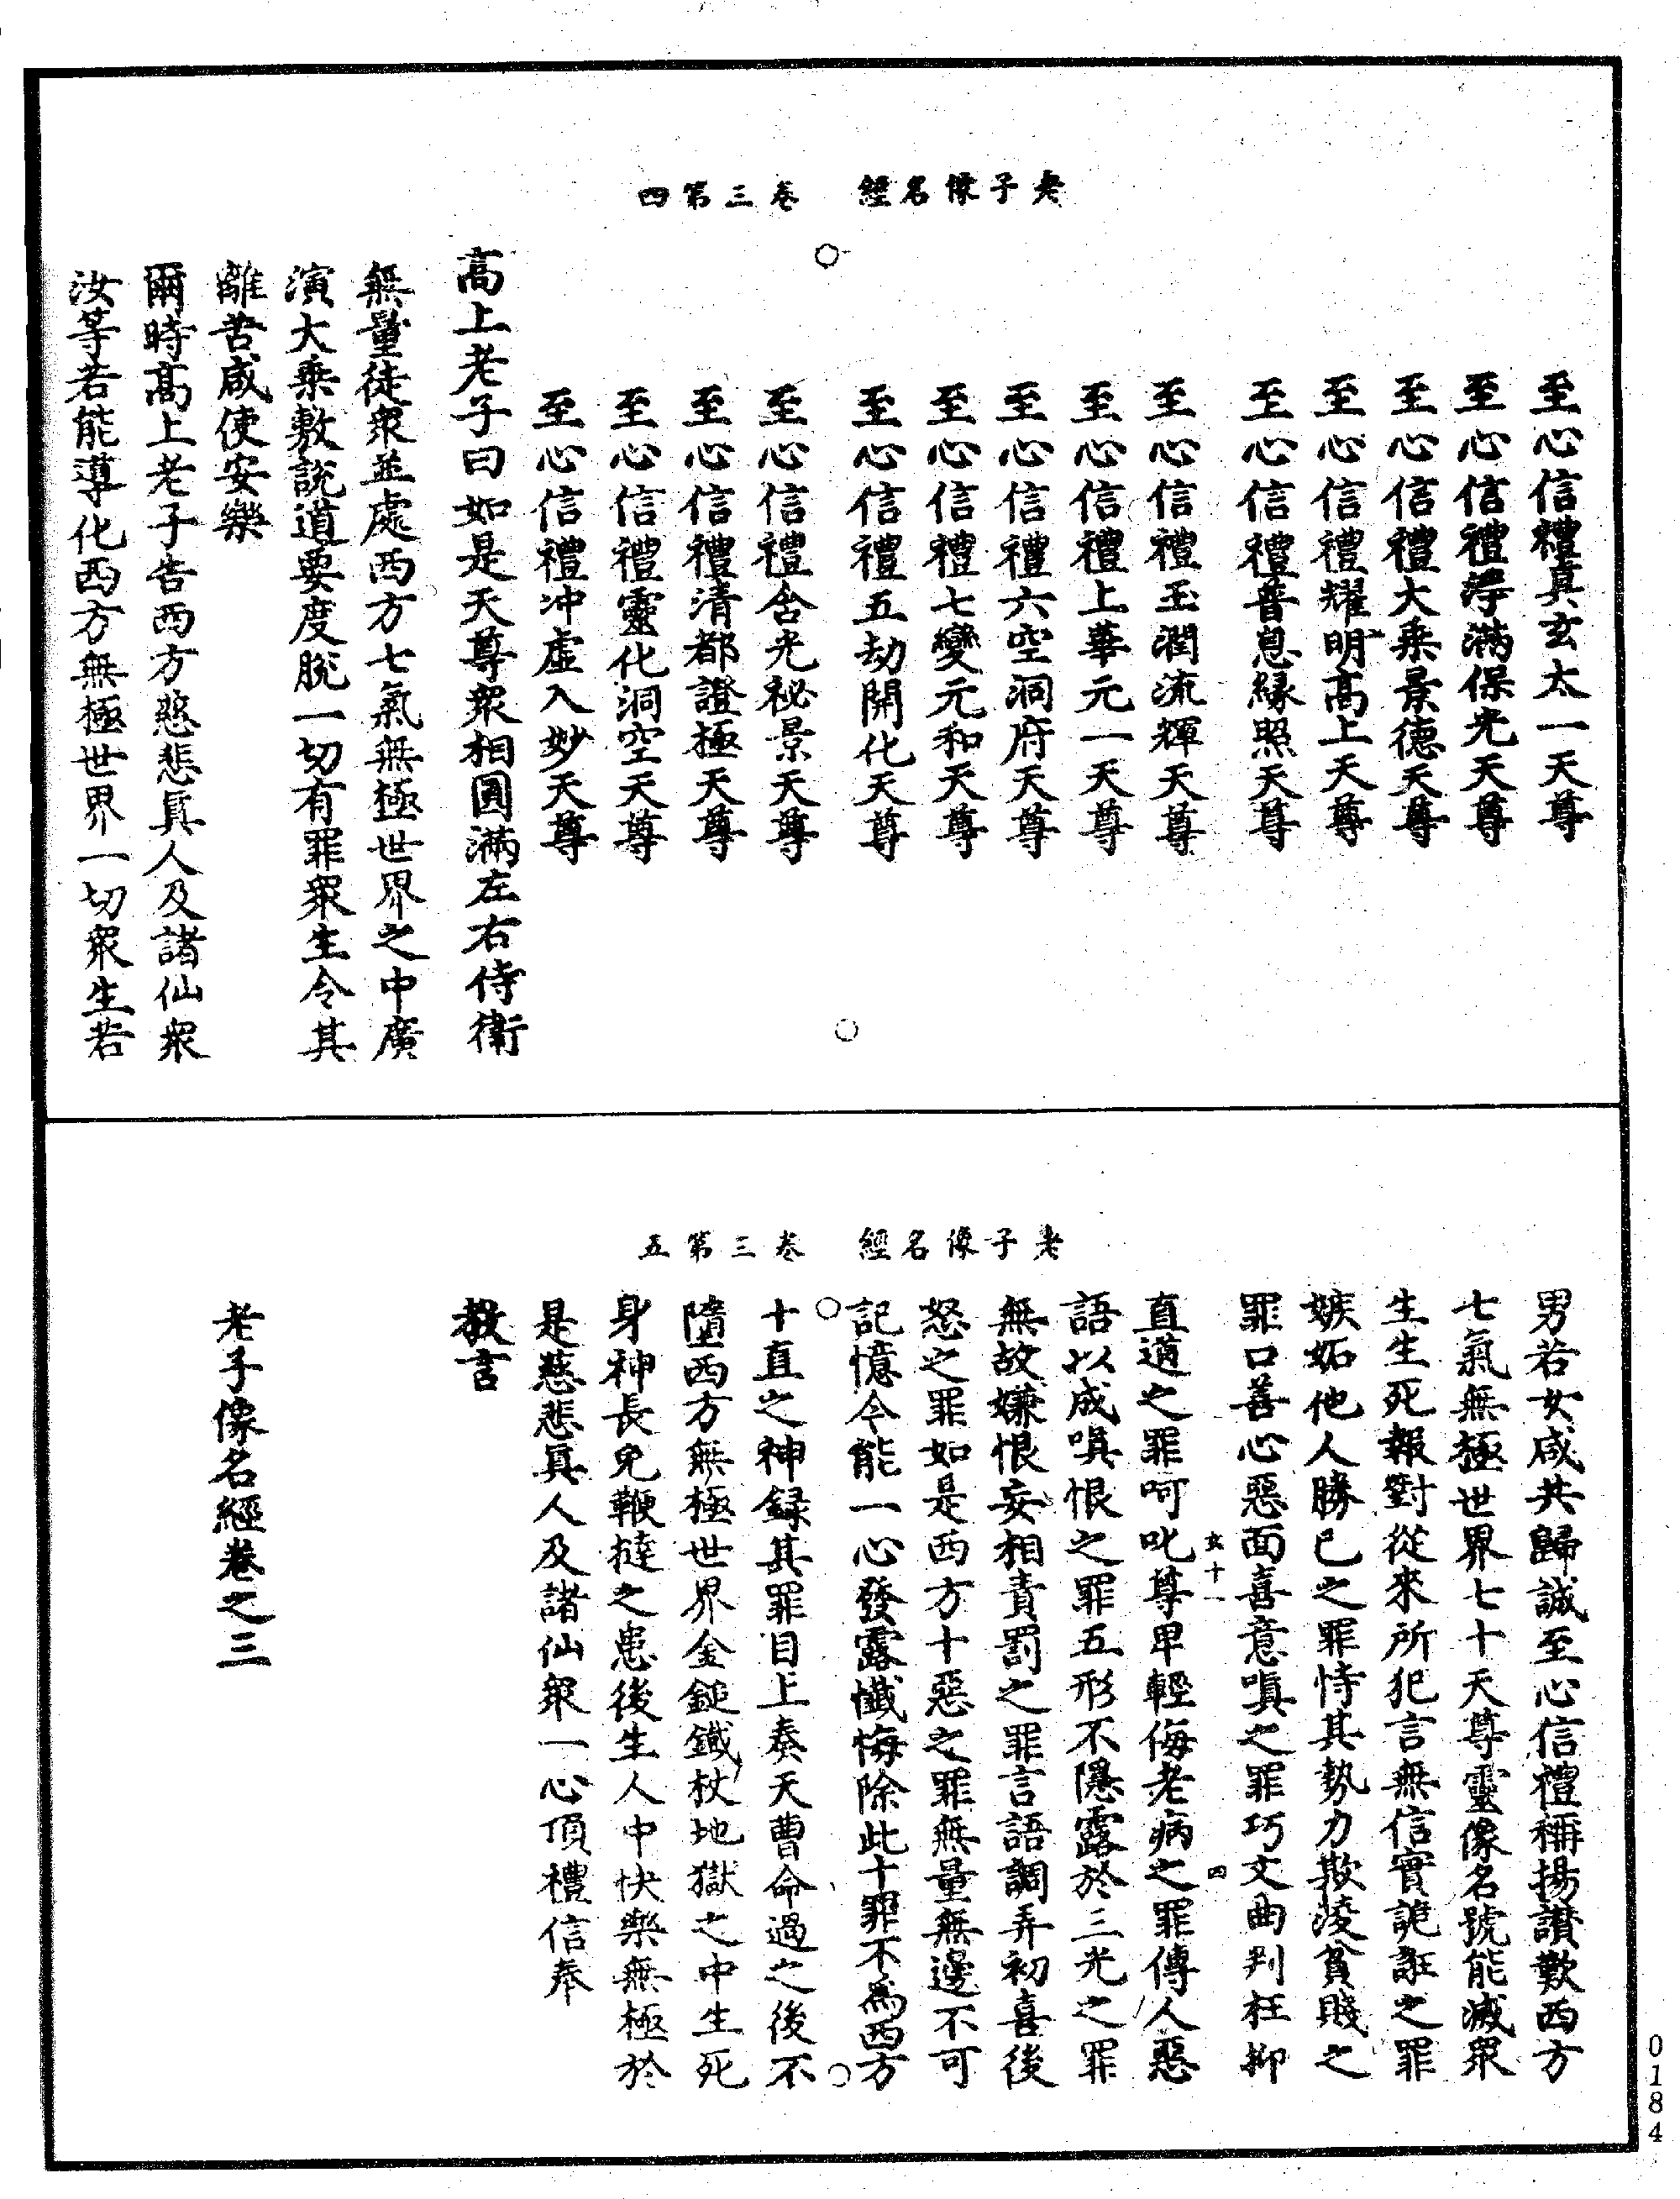 老子像名經　卷三第四
至心信禮真玄太一天尊
至心信禮淳滿保光天尊
至心信禮大乘景德天尊
至心信禮耀明高上天尊
至心信禮普息緣照天尊
至心信禮玉潤流輝天尊
至心信禮上華元一天尊
至心信禮六空洞府天尊
至心信禮七變元和天尊
至心信禮五劫開化天尊
至心信禮含光祕景天尊
至心信禮清都證極天尊
至心信禮靈化洞空天尊
至心信禮冲虛入妙天尊
高上老子曰如是天尊衆相圓滿左右侍衛
無量徒衆並處西方七氣無極世界之中廣
演大乘敷說道要度脫一切有罪衆生令其
離苦咸使安樂
爾時高上老子告西方慈悲真人及諸仙衆
汝等若能導化西方無極世界一切衆生若
老子像名經　卷三第五
男若女咸共歸誠至心信禮稱揚讚歎西方
七氣無極世界七十天尊靈像名號能滅衆
生生死報對從來所犯言無信實詭誑之罪
嫉妬他人勝己之罪恃其勢力欺淩貧賤之
罪口善心惡面喜意嗔之罪巧文曲判枉抑
玄十一　四
直道之罪呵叱尊卑輕侮老病之罪傳人惡
語以成嗔恨之罪五形不隱露於三光之罪
無故嫌恨妄相責罰之罪言語調弄初喜後
怒之罪如是西方十惡之罪無量無邊不可
記憶今能一心發露懺悔除此十罪不為西方
十直之神録其罪目上奏天曹命過之後不
墮西方無極世界金鎚鐵杖地獄之中生死
身神長免鞭撻之患後生人中快樂無極於
是慈悲真人及諸仙衆一心頂禮信奉
教言
老子像名經卷之三
0184